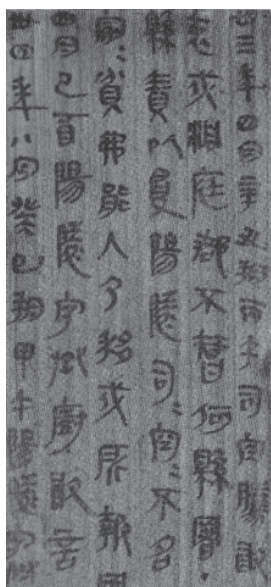 卅三年四月辛丑朔丙午司空騰敢
衷戍洞庭郡不智何縣署
縣責以受陽陵司〓空〓不名
家〓貧弗能入乃移戍所報署
四月己酉陽陵守丞廚敢言
卅四年八月癸巳朔甲午陽陵守丞